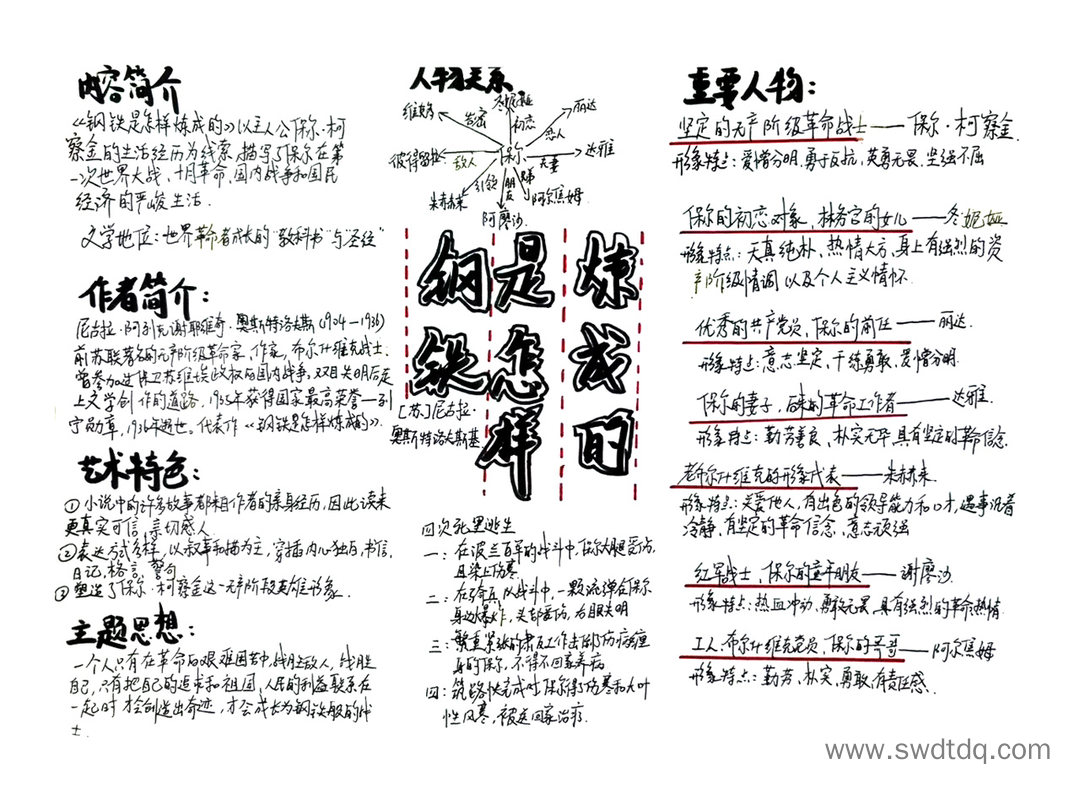 内容简介
《钢铁是怎样炼成的》以主人公保尔·柯
察金的生活经历为线索,描写了保尔在第
一次世界大战、十月革命、国内战争和国民
经济的严峻生活.
文学地位:世界革命者成长的"教科书"与"圣经"
作者简介:
尼古拉·阿列克谢耶维奇·奥斯特洛夫斯(1904—1936)
前苏联著名的无产阶级革命家、作家,布尔什维克战士.
曾参加过保卫苏维埃政权的国内战争,双目失明后走
上文学创作的道路,1935年获得国家最高荣誉—列
宁勋章,1936年逝世。代表作《钢铁是怎样炼成的》.
艺术特色:
①小说中的许多故事都来自作者的亲身经历,因此读来
更真实可信,亲切感人.
②表达方式多样,以叙事和描为主,穿插内心独白,书信,
日记,格言,警句
③塑造了保尔·柯察金这一无产阶段英雄形象.
主题思想:
一个人只有在革命的艰难困苦中,战胜敌人,战胜
自己,只有把自己的追求和祖国、人民的利益联系在
一起时才会创造出奇迹,才会成长为钢铁般的战
士.
人物关系
保尔
冬妮娅
初恋
丽达
恋人
达雅
夫妻
阿尔焦姆
兄弟
阿廖沙
朋友
朱赫来
引领
彼得留拉
敌人
维姆
告密
钢铁是怎样炼成的
[苏]尼古拉·
奥斯特洛夫斯基
四次死里逃生
一:在波兰白军的战斗中,保尔大腿受伤,
且染上伤寒
二:在骑兵战斗中,一颗流弹在保尔
身边爆炸,头部重伤,右眼失明
三:繁重紧张的肃反工作击倒伤病缠
身的保尔,不得不回家养病
四:筑路快完成时,保尔得了伤寒和大叶
性风寒,被送回家治疗.
重要人物:
坚定的无产阶级革命战士——保尔·柯察金
形象特点:爱憎分明,勇于反抗,英勇无畏、坚强不屈
保尔的初恋对象,林务官的女儿——冬妮娅
形象特点:天真纯朴、热情大方,身上有强烈的资
产阶级情调以及个人主义情怀.
优秀的共产党员,保尔的前任——丽达.
形象特点:意志坚定,干练勇敢,爱憎分明.
保尔的妻子,后来的革命工作者——达雅.
形象特点:勤劳善良,朴实无华,具有坚定的革命信念.
老布尔什维克的形象代表——朱赫来
形象特点:关爱他人,有出色的领导能力和口才,遇事沉着
冷静,有坚定的革命信念,意志顽强
红军战士、保尔的童年朋友——谢廖沙
形象特点:热血冲动,勇敢无畏,具有强烈的革命热情
工人,布尔什维克党员,保尔的哥哥——阿尔焦姆
形象特点:勤劳、朴实、勇敢,有责任感.
www.swdtdq.com